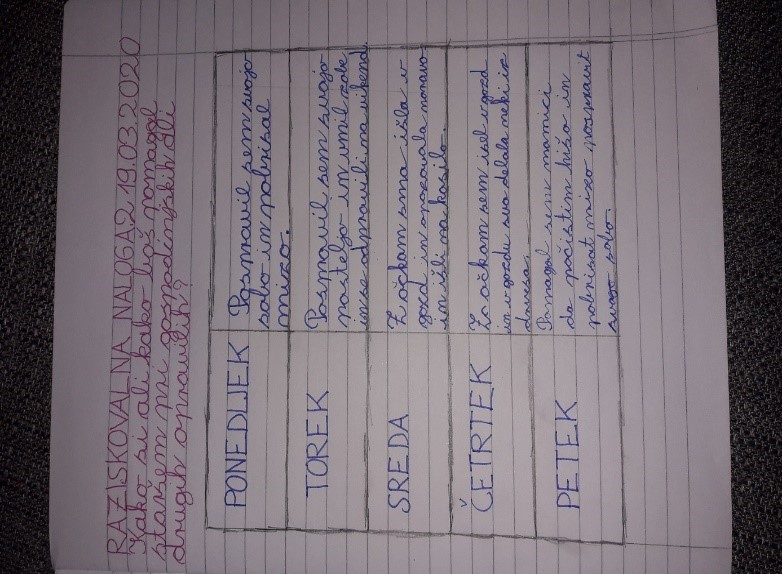 RAZISKOVALNA NALOGA 2 19.03.2020
Kako si ali kako boš pomagal
staršem pri gospodinjskih ali
drugih opravilih?
PONEDLJEK
Pospravil sem svojo
sobo in pobrisal
mizo.
TOREK
Pospravil sem svojo
posteljo in umil zobe
in se odpravili na vikend.
SREDA
Z očkam sma išla v
gozd in opazovala naravo
in išli na kosilo.
ČETRTEK
Z očkam sem išel v gozd
in v gozdu sva delala neki iz
PETEK
Pomagal sem mamici
da počistim hišo in
pobrisat mizo pospravit
svojo sobo.